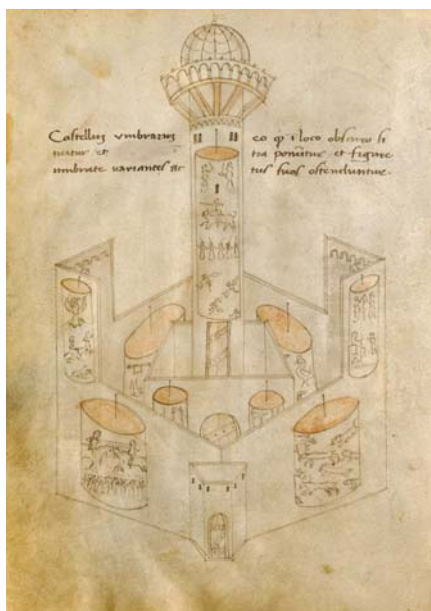 Castelluȝ vmbraruȝ eo qȝ i loco obscuro si
tuatur et tra ponitur et figure
umbrate variantes ac tus suos ostenduntur.